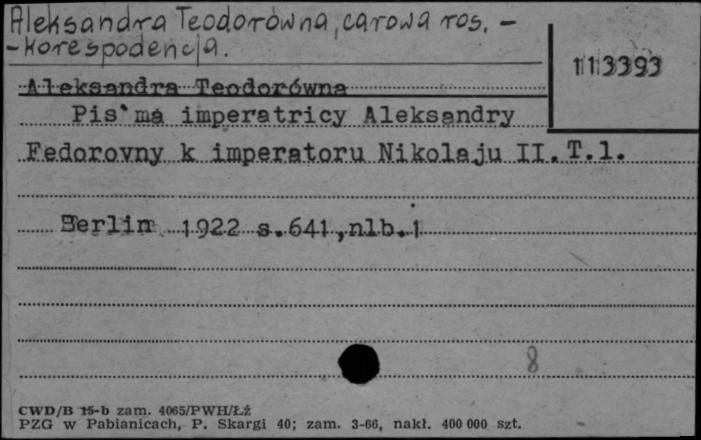 Aleksandra Teodorówna, carowa ros. -
- korespodencja.
113393
Aleksandra Teodorówna
Pis'ma imperatricy Aleksandry
Fedorovny k imperatoru Nikolaju II. T.1.
Berlin 1922 s.641,nlb.1
8
CWD/B 15-b zam. 4065/PWH/Łż
PZG w Pabianicach, P. Skargi 40; zam. 3-66, nakł. 400 000 szt.